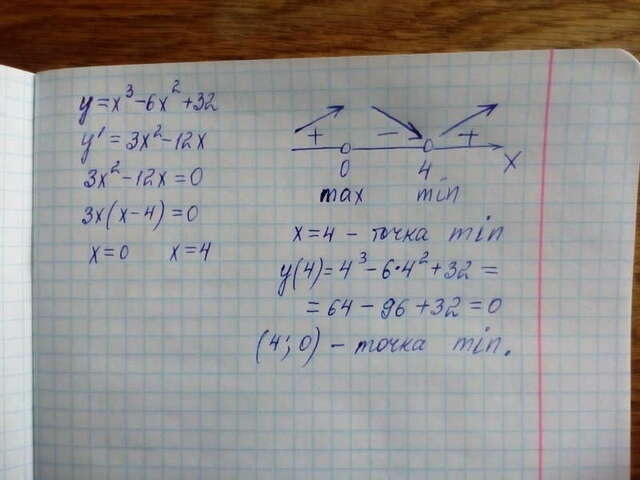 y=x³-6x²+32
y'=3x²-12x
3x²-12x=0
3x(x-4)=0
x=0 x=4
+ - +
0 4 x
max min
x=4 - точка min
y(4)=4³-6·4²+32=
=64-96+32=0
(4;0) - точка min.